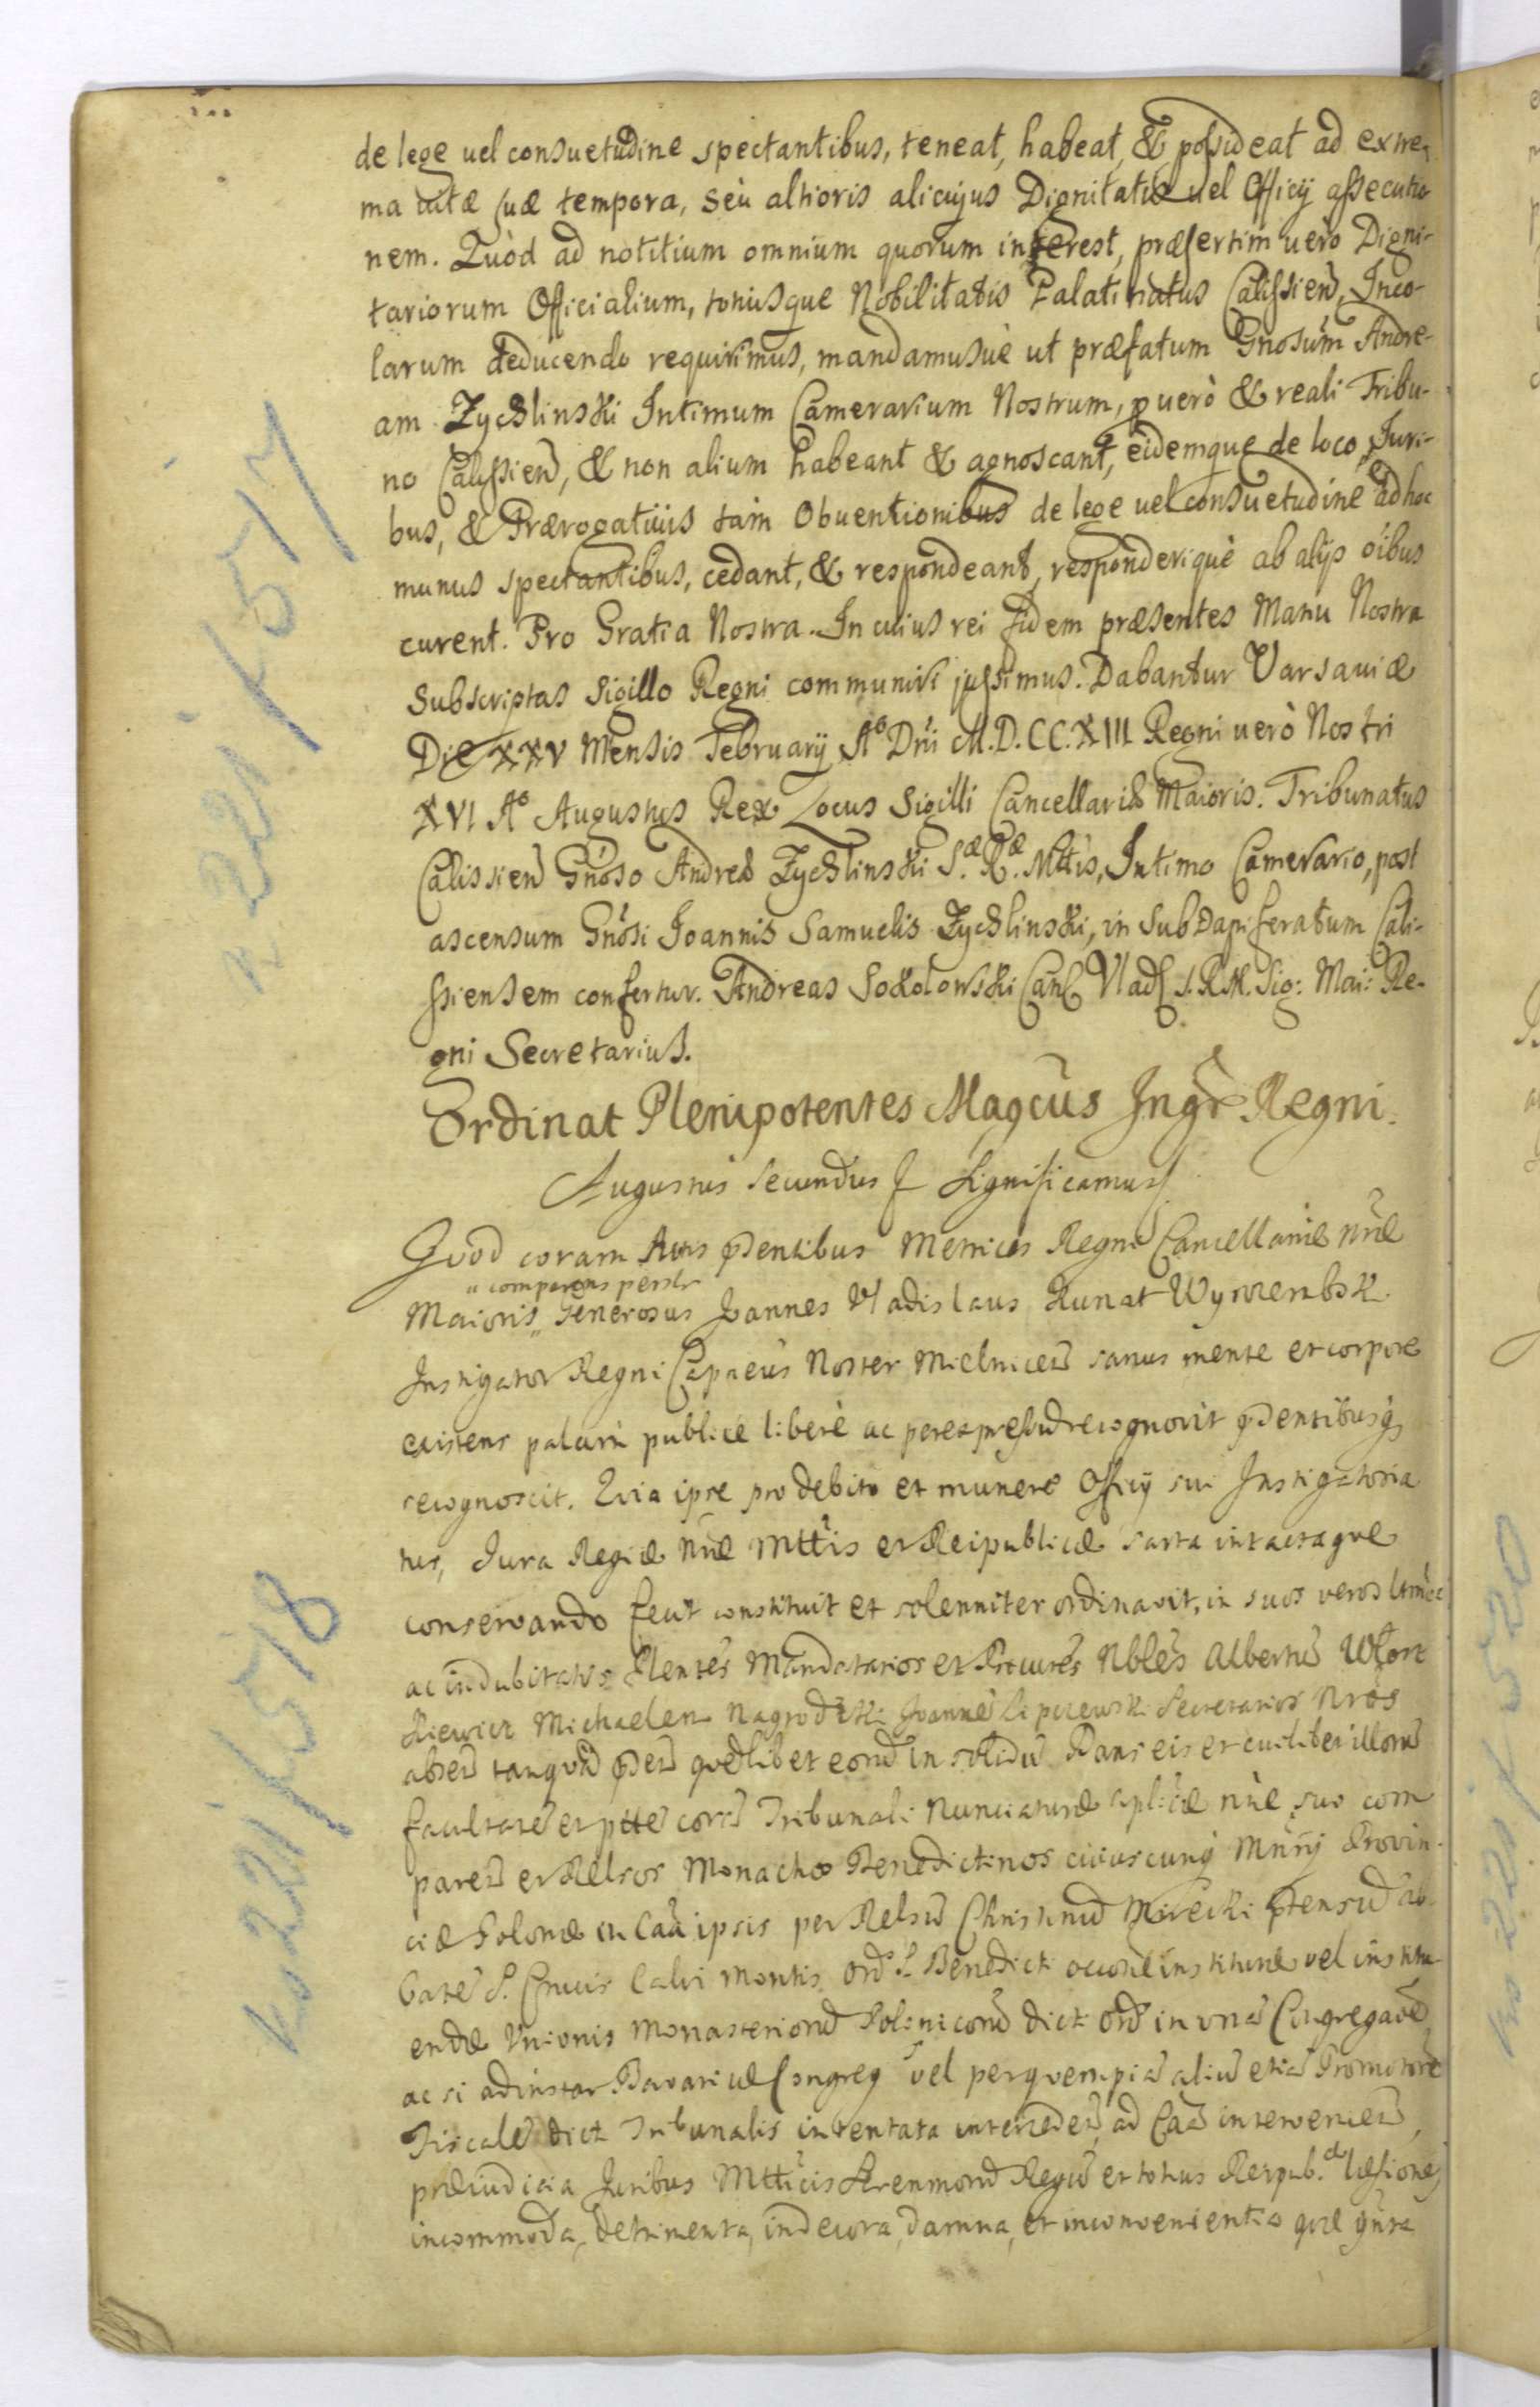 de lege uel consuetudine spectantibus, teneat, habeat, & possideat ad extre-
ma uitæ suæ tempora, seù altioris alicujus Dignitatis uel Officij assecutio-
nem. Quòd ad notitium omnium quorum interest, præsertim uerò Digni-
tariorum Officialium, totiusque Nobilitatis Palatinatus Calissien, Inco-
larum deducendo requirimus, mandamusuè ut præfatum Gnosum Andre-
am Zychlinski Intimum Camerarium Nostrum, p uerò & reali Tribu-
no Calissien, & non alium habeant & agnoscant, eidemque de loco, Juri-
bus, & Prærogatiuis tàm Obuentionibus de lege uel consuetudine ad hoc
munus spectantibus, cedant, & respondeant, responderiquè ab alijs oibus
curent. Pro Gratia Nostra. In cuius rei fidem præsentes Manu Nostra
Subscriptas Sigillo Regni communiri jussimus. Dabantur Varsauiæ
Die XXV Mensis February Aº Dni M.D.CC.XIII Regni uerò Nostri
XVI Aº Augustus Rex Locus Sigilli Cancellariæ Maioris. Tribunatus
Calissien Gnoso Andreæ Zychlinski S.æ R.æ Mttis, Intimo Camerario, post
ascensum Gnosi Joannis Samuelis Zychlinski, in SubDapiferatum Cali-
ssiensem confertur. Andreas Sokolowski Canc Vlad S.R.M. Sig: Mai: Re-
gni Secretarius.
Ordinat Plenipotentes Magcus Ingr Regni.
Augustus Secundus Significamus
Quod coram Actis pdentibus Metrices Regni Cancellariæ nræ
"comparens persr
Maioris" Generosus Joannes Vladislaus Kunat Wyrozembsk
Instigator Regni Capneus Noster Mielnicen sanus mente et corpore
existens palam publice liberè ac per expressum recognovit pdentibusq
recognoscit. Quia ipse pro debito et munere Officij sui Instigatoria
tus, Jura Regiæ nræ Mttis et Reipublicæ sarta intactaque
conservando fecit constituit et solenniter ordinavit, in suos veros
ac indubitatos Plentes Mandatarios et Procures Nbles Albertu
Kiewicz Michaelem Nagrodzki Joanne Lipczewski Secretarios Nros
absen tanqvã pden quodlibet eorum in solidu Dans eis et cuilibet illorum
facultatē et ptte corã Tribunali Nunciaturæ aplicæ nræ suo com
paren et Relsos Monachos Benedictinos cuiuscunq Mnrij Provin-
ciæ Polonæ in Caa ipsis per Relsu Christinu Mirecki ptensu ab
bate S. Crucis Calvi Montis Ord S Benedicti occone institutæ vel institu
endæ Vnionis Monasteriorum Polonicorum dicti Ord in una Congregaōe
ac si adinstar Bavaricæ Congreg vel per qvempiã aliu etiã Promotore
Fiscale dicti Tribunalis intentata interceden, ad Caa intervenien,
præiudicia Juribus Mtticis Serenmorum Regu et totius Reipub. læsione,
incommoda, detrimenta, indecora, damna, et inconvenientia quæ
k 221 / 517
k. 221 / 518